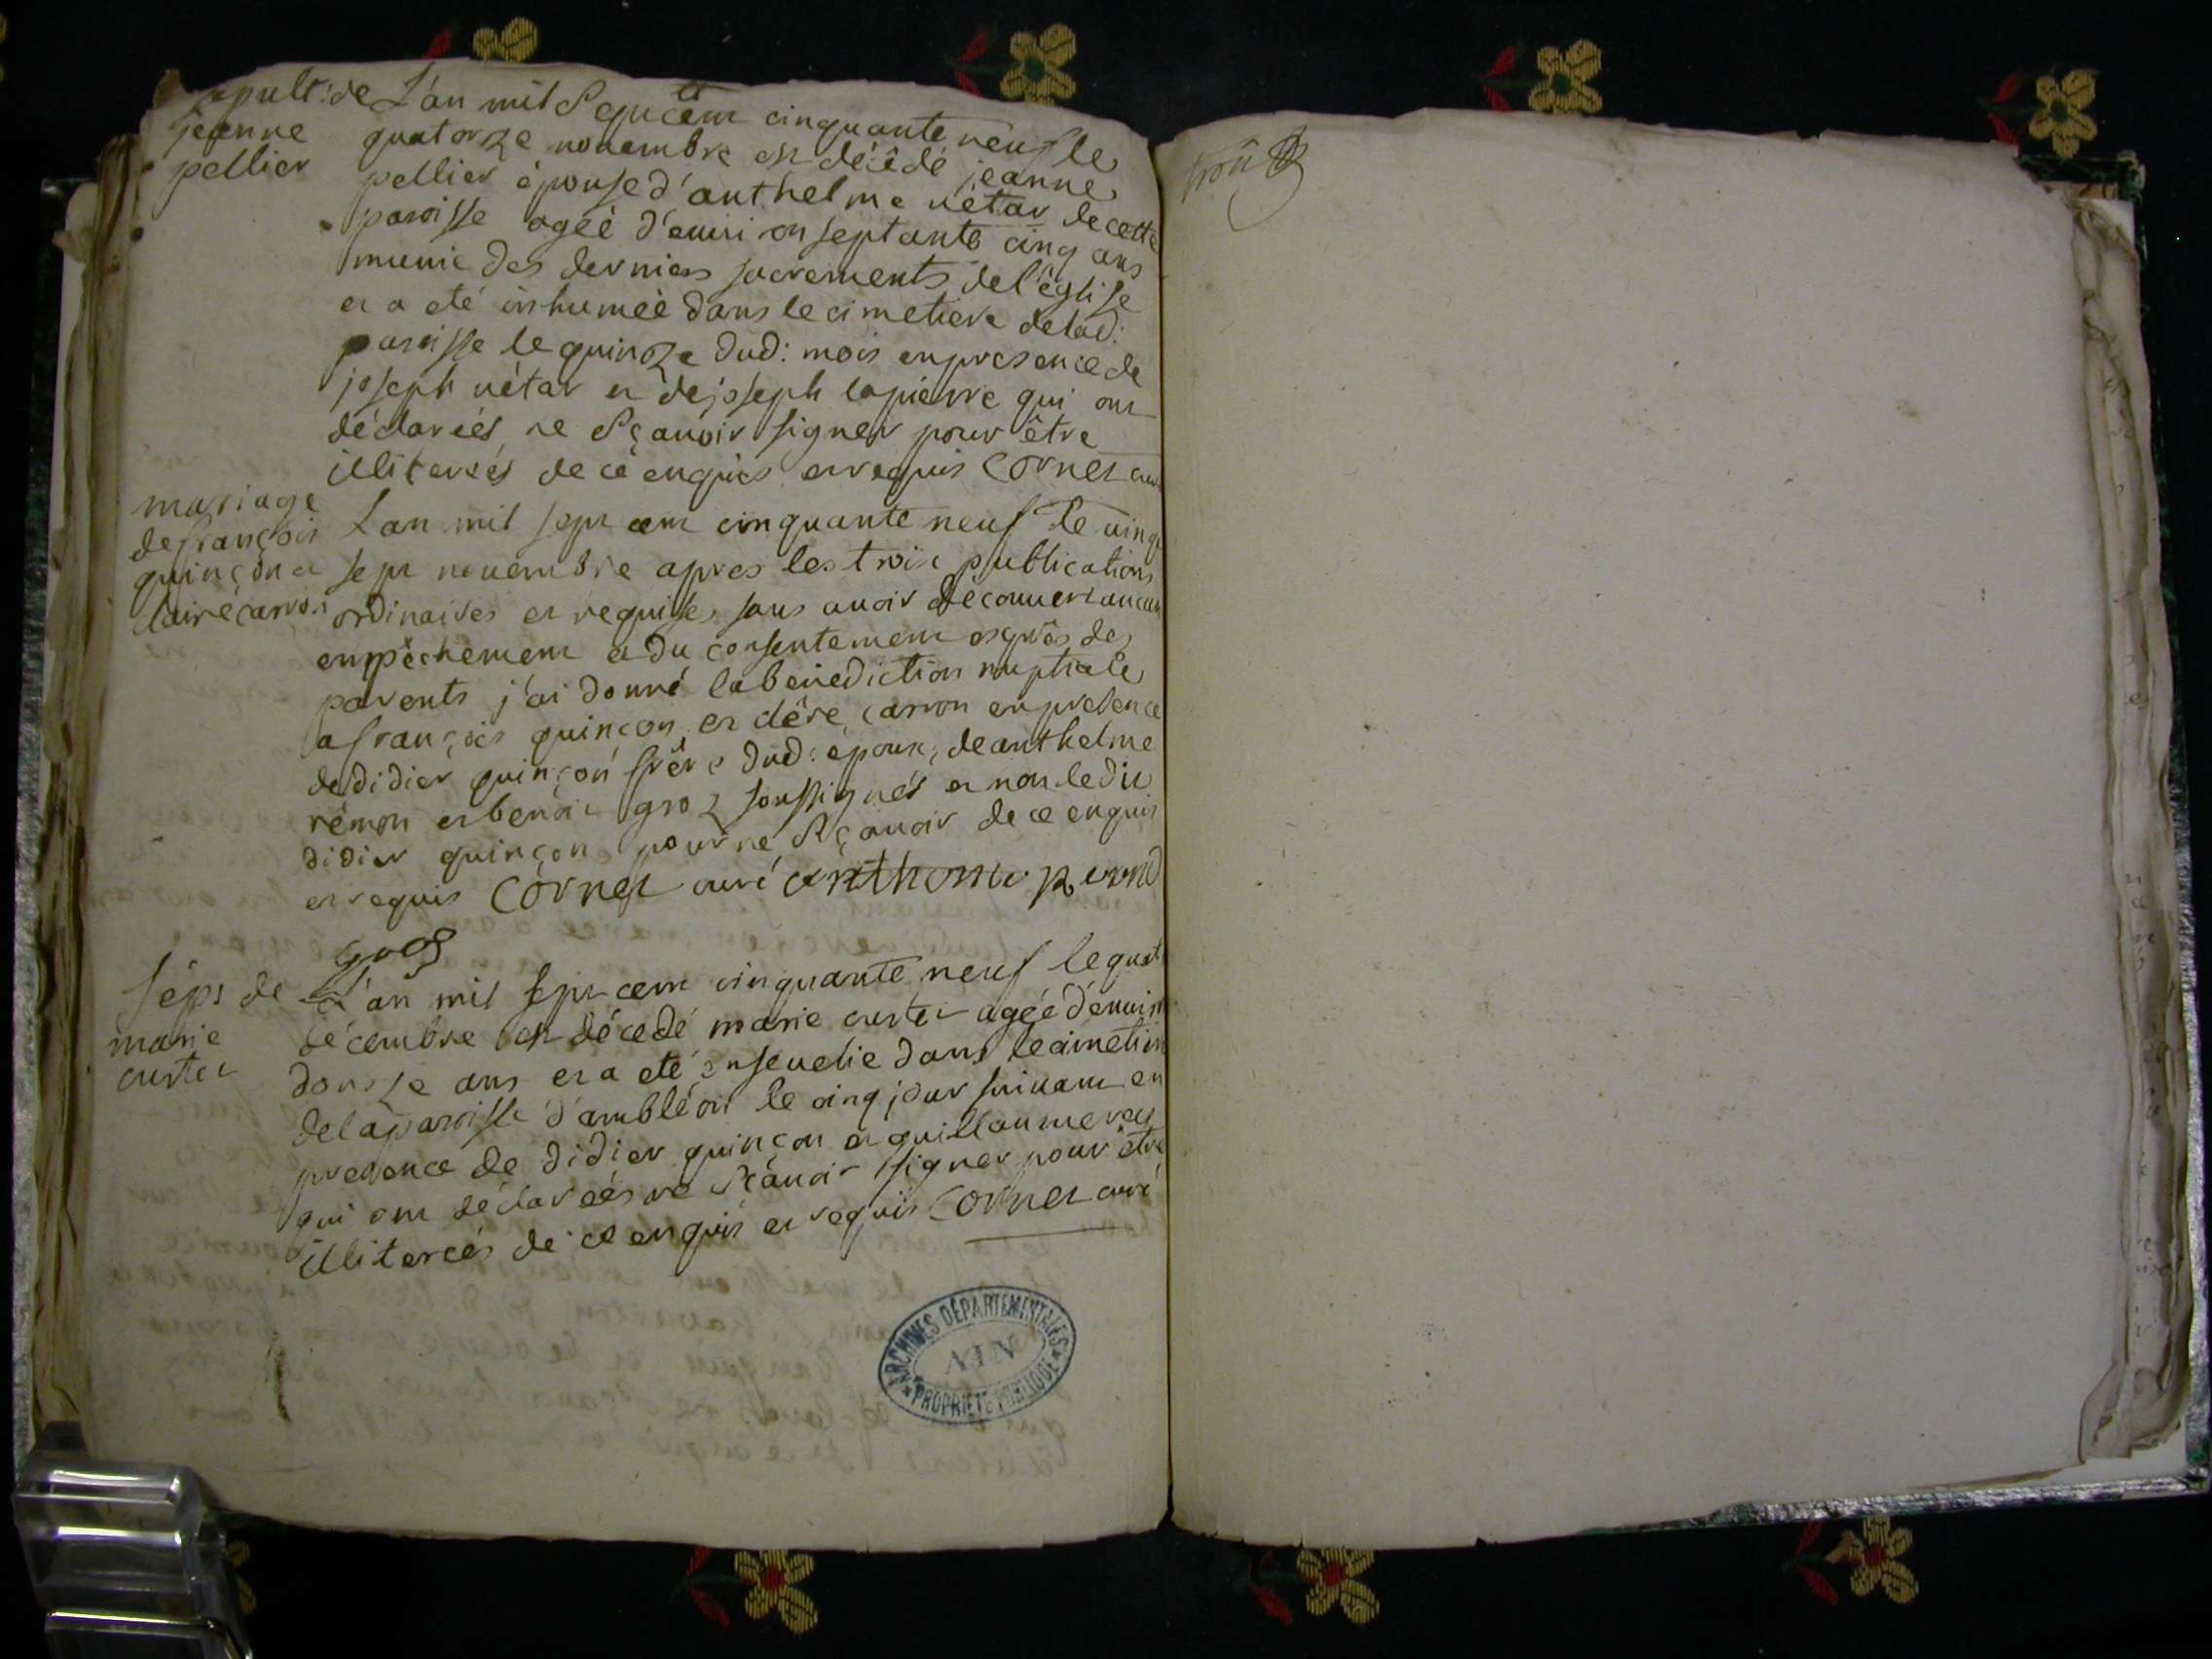 sepult: de
jeanne
pellier
L'an mil Sept cent cinquante neuf le
quatorze novembre est décédé jeanne
pellier épouse d'anthelme vétar de cette
paroisse agéé d'environ septante cinq ans
munie des derniers sacrements de l'église
et a été inhumée dans le cimetiere de lad:
paroisse le quinze dud: mois en presence de
joseph vétar et de joseph lapierre qui ont
déclarés ne Sçavoir signer pour être
illiterés de ce enquis et requis Cornet curé
mariage
de françois
quinçon et
claire carron
L'an mil sept cent cinquante neuf le vingt
sept novembre apres les trois publications
ordinaires et requises sans avoir découvert aucun
empêchement et du consentement exprès des
parents j'ai donné la benediction nuptiale
a françois quinçon et clére carron en presence
de didier quinçon frére dud: époux, de anthelme
rémon et benoit groz soussignés et non le dit
didier quinçon pour ne Sçavoir de ce enquis
et requis Cornet curé anthome
gros
séps de
marie
curtet
L'an mil sept cent cinquante neuf le quatre
décembre est décedé marie curtet agéé d'environ
dousse ans et a eté ensevelie dans le cimetiere
de la paroisse d'ambléon le cinq jour suivant en
presence de didier quinçon et guillaume
qui ont déclareés ne Sçavoir signer pour être
illitereés de ce enquis et requis Cornet curé
ARCHIVES DÉPARTEMENTALES
AIN
PROPRIÉTÉ PUBLIQUE